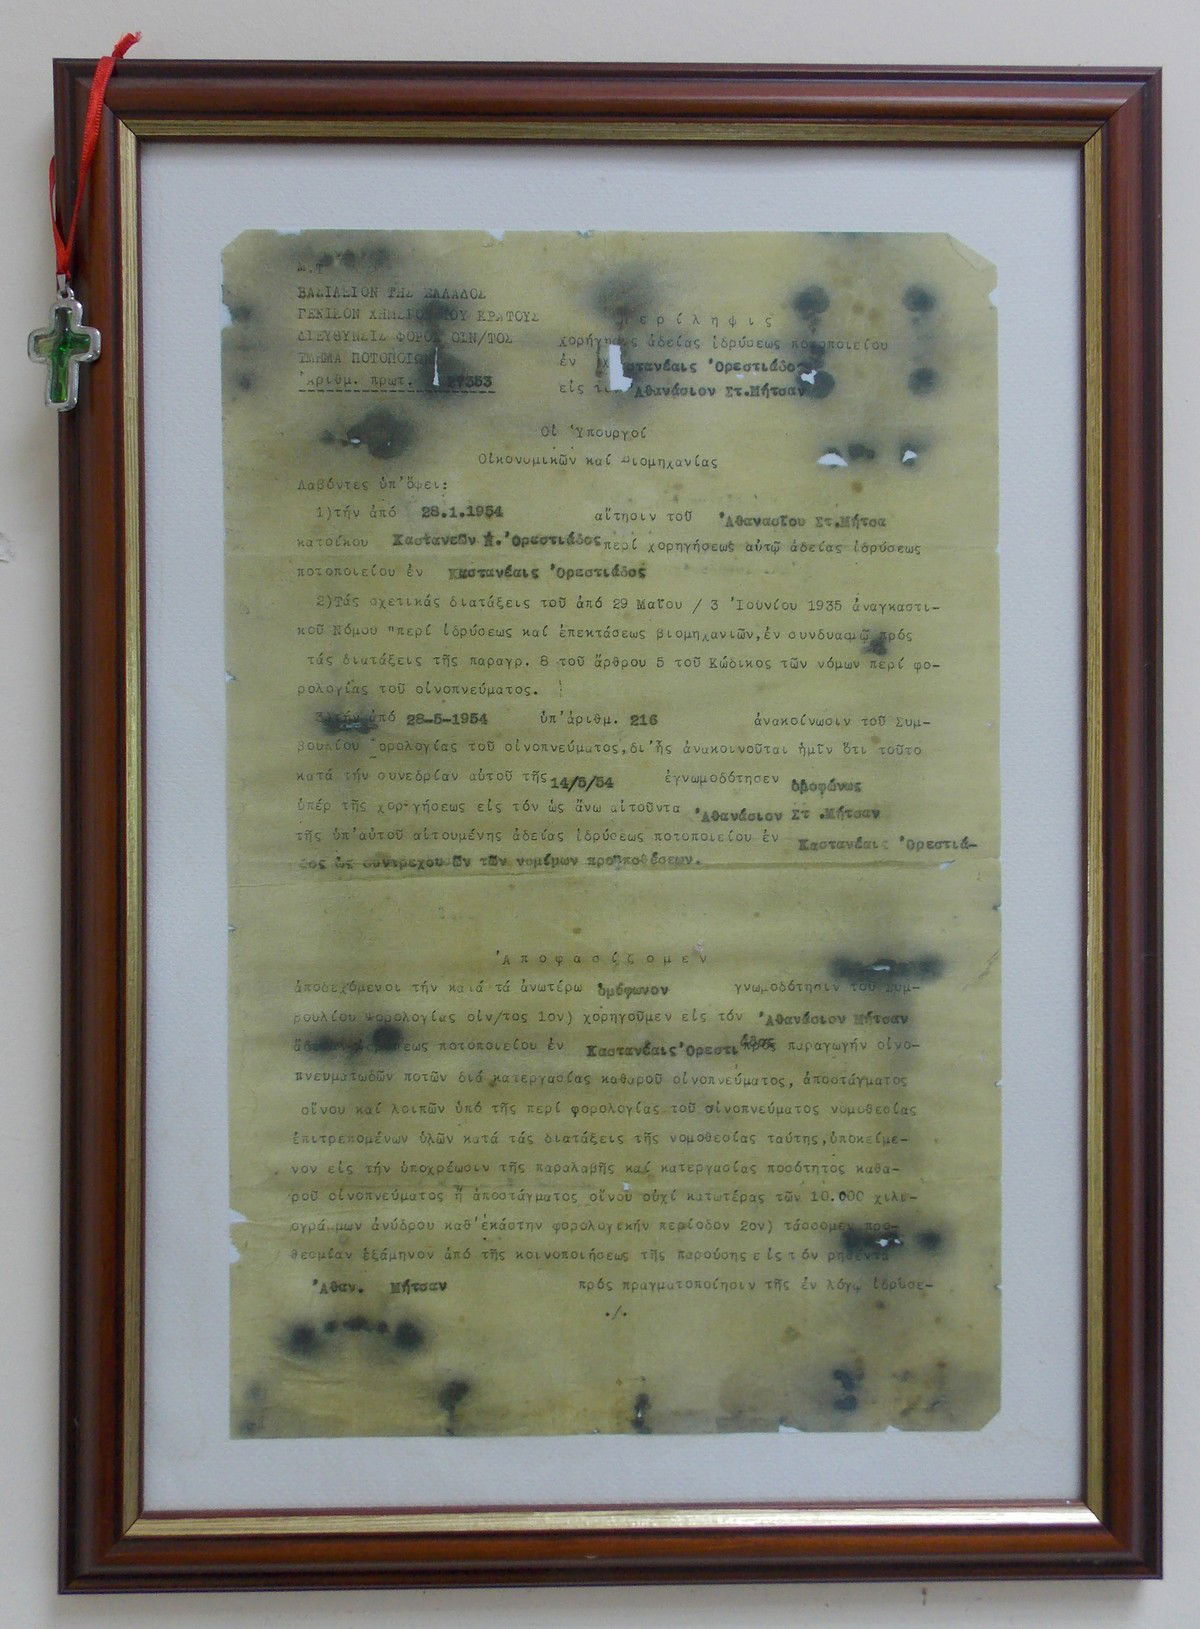 Μ.Τ
ΒΑΣΙΛΕΙΟΝ ΤΗΣ ΕΛΛΑΔΟΣ
ΓΕΝΙΚΟΝ ΧΗΜΕΙΟΝ ΤΟΥ ΚΡΑΤΟΥΣ
ΔΙΕΥΘΥΝΣΙΣ ΦΟΡΟΛ ΟΙΝ/ΤΟΣ
ΤΜΗΜΑ ΠΟΤΟΠΟΙΩΝ
Ἀριθμ. πρωτ. 27353
Περίληψις
χορήγησις ἀδείας ἱδρύσεως ποτοποιείου
ἐν Καστανέαις Ὀρεστιάδος
εἰς τὸν Ἀθανάσιον Στ.Μήτσαν
Οἱ Ὑπουργοί
Οἰκονομικῶν καί Βιομηχανίας
Λαβόντες ὑπ'ὄψει:
1)τήν ἀπό 28.1.1954 αἴτησιν τοῦ Ἀθανασίου Στ.Μήτσα
κατοίκου Καστανεῶν Ν.Ὀρεστιάδος περί χορηγήσεως αὐτῷ ἀδείας ἱδρύσεως
ποτοποιείου ἐν Καστανέαις Ὀρεστιάδος
2)Τάς σχετικάς διατάξεις τοῦ ἀπό 29 Μαΐου / 3 Ἰουνίου 1935 ἀναγκαστι-
κοῦ Νόμου "περί ἱδρύσεως καί ἐπεκτάσεως βιομηχανιῶν,ἐν συνδυασμῷ πρός
τάς διατάξεις τῆς παραγρ. 8 τοῦ ἄρθρου 5 τοῦ Κώδικος τῶν νόμων περί φο-
ρολογίας τοῦ οἰνοπνεύματος.
3)τήν ἀπό 28-5-1954 ὑπ'ἀριθμ. 216 ἀνακοίνωσιν τοῦ Συμ-
βουλίου φορολογίας τοῦ οἰνοπνεύματος,δι'ἧς ἀνακοινοῦται ἡμῖν ὅτι τοῦτο
κατά τήν συνεδρίαν αὐτοῦ τῆς 14/5/54 ἐγνωμοδότησεν ὁμοφώνως
ὑπέρ τῆς χορηγήσεως εἰς τόν ὡς ἄνω αἰτοῦντα Ἀθανάσιον Στ .Μήτσαν
τῆς ὑπ'αὐτοῦ αἰτουμένης ἀδείας ἱδρύσεως ποτοποιείου ἐν Καστανέαις Ὀρεστιά-
δος ὡς συντρεχουσῶν τῶν νομίμων προϋποθέσεων.
Ἀποφασίζομεν
ἀποδεχόμενοι τήν κατά τά ἀνωτέρω ὁμόφωνον γνωμοδότησιν τοῦ Συμ-
βουλίου Φορολογίας οἰν/τος 1ον) χορηγοῦμεν εἰς τόν Ἀθανάσιον Μήτσαν
ἄδειαν ἱδρύσεως ποτοποιείου ἐν Καστανέαις Ὀρεστιάδος πρός παραγωγήν οἰνο-
πνευματωδῶν ποτῶν διά κατεργασίας καθαροῦ οἰνοπνεύματος, ἀποστάγματος
οἴνου καί λοιπῶν ὑπό τῆς περί φορολογίας τοῦ οἰνοπνεύματος νομοθεσίας
ἐπιτρεπομένων ὑλῶν κατά τάς διατάξεις τῆς νομοθεσίας ταύτης,ὑποκείμε-
νον εἰς τήν ὑποχρέωσιν τῆς παραλαβῆς καί κατεργασίας ποσότητος καθα-
ροῦ οἰνοπνεύματος ἤ ἀποστάγματος οἴνου οὐχί κατωτέρας τῶν 10.000 χιλι-
ογράμμων ἀνύδρου καθ'ἑκάστην φορολογικήν περίοδον 2ον) τάσσομεν προ-
θεσμίαν ἑξάμηνον ἀπό τῆς κοινοποιήσεως τῆς παρούσης εἰς τόν ρηθέντα
Ἀθαν. Μήτσαν πρός πραγματοποίησιν τῆς ἐν λόγῳ ἱδρύσε-
./.